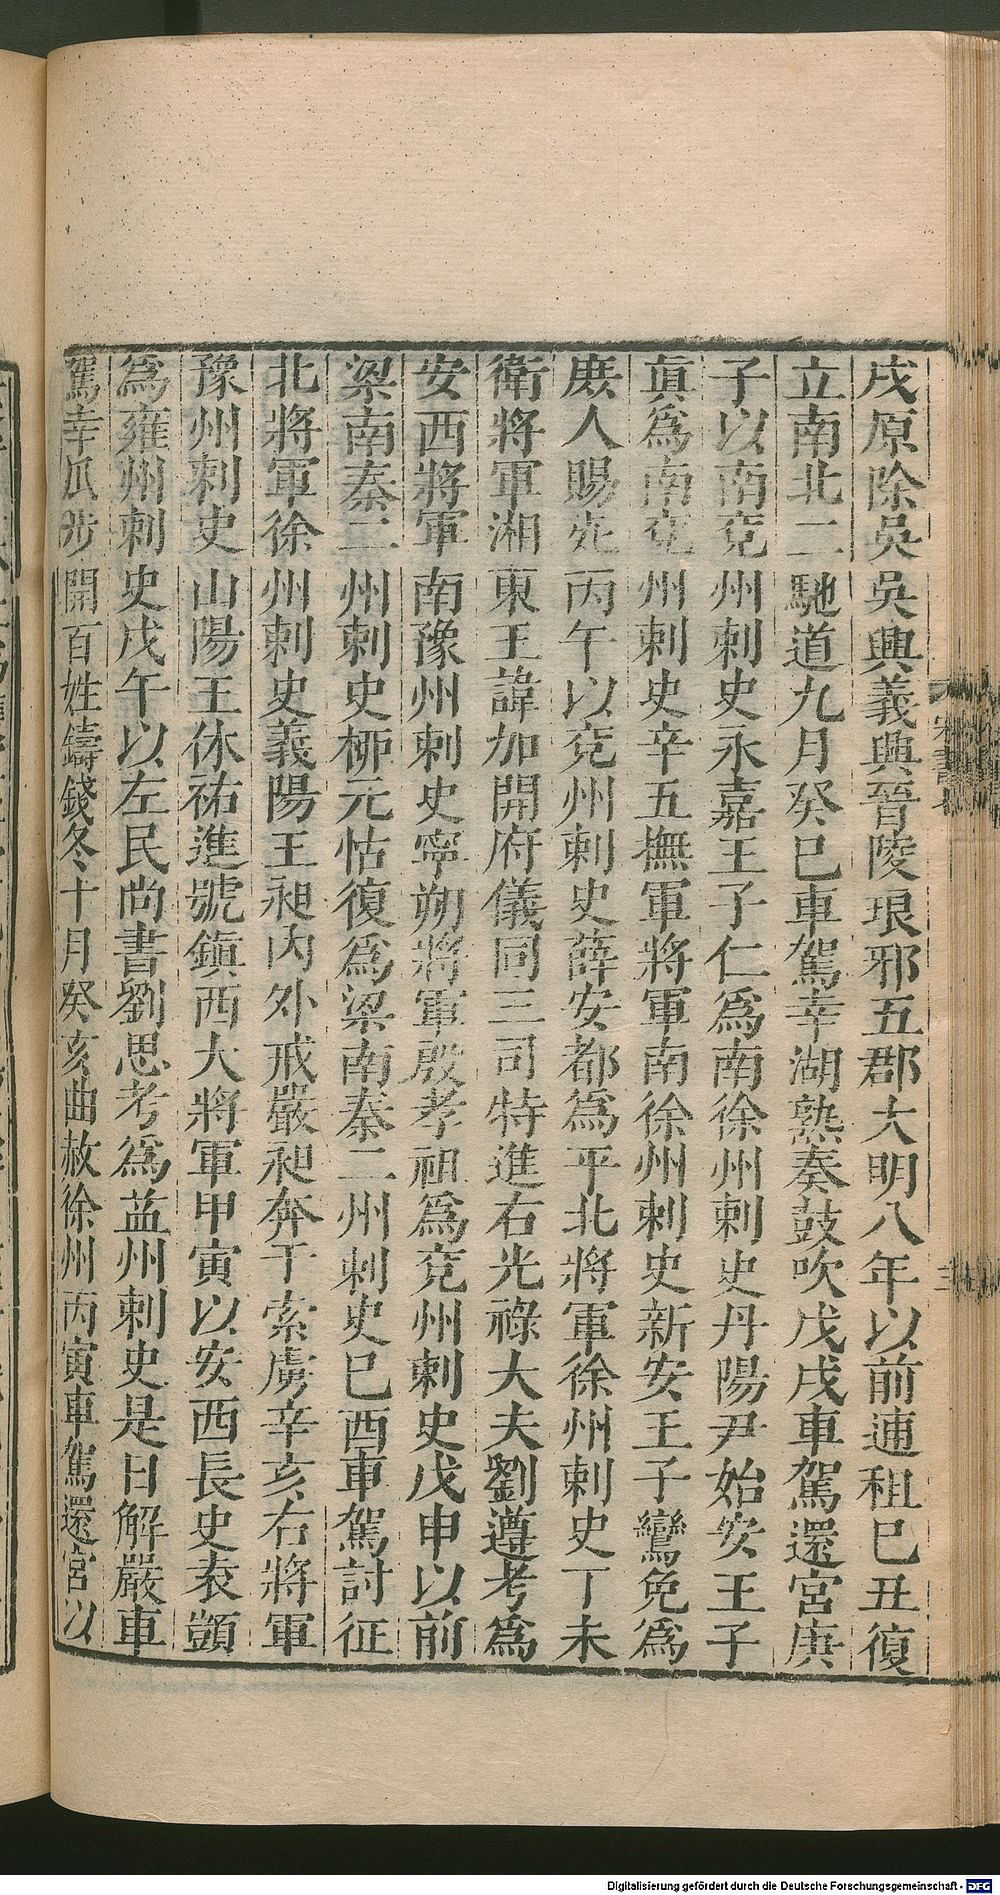 戌原除吳吳興義興晉陵琅邪五郡大明八年以前逋租巳丑復
立南北二馳道九月癸巳車駕幸湖熟奏鼓吹戊戌車駕還宮庚
子以南兖州刺史永嘉王子仁爲南徐州刺史丹陽尹始安王子
眞爲南兖州刺史辛丑撫軍將軍南徐州刺史新安王子鸞免爲
庶人賜死丙午以兖州刺史薛安都爲平北將軍徐州刺史丁未
衛將軍湘東王諱加開府儀同三司特進右光祿大夫劉遵考爲
安西將軍南豫州刺史寧朔將軍殷孝祖爲兖州刺史戊申以前
梁南秦二州刺史栁元怙復爲梁南秦二州刺史巳酉車駕討征
北將軍徐州刺史義陽王昶內外戒嚴昶奔于索虜辛亥右將軍
豫州刺史山陽王休祐進號鎭西大將軍甲寅以安西長史袁顗
爲雍州刺史戊午以左民尚書劉思考爲益州刺史是日解嚴車
駕幸瓜步開百姓鑄錢冬十月癸亥曲赦徐州丙寅車駕還宮以
Digitalisierung gefördert durch die Deutsche Forschungsgemeinschaft - DFG